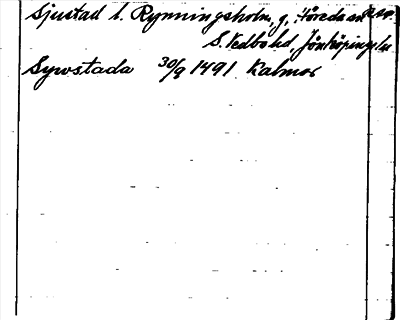 Sjustad t. Rymningsholm, g. Höreda sn
S. Vedbo hd, Jönköpings län
Sywstada 30/9 1491 Kalmar